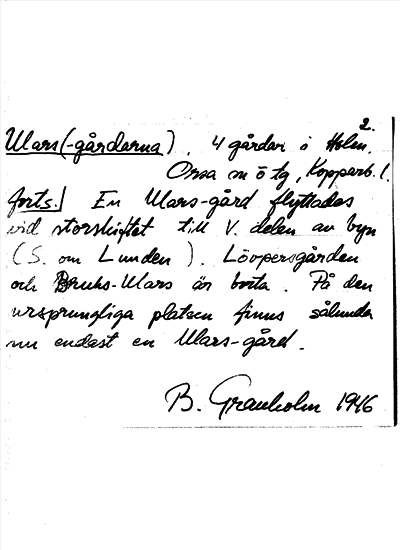 2.
Mars(-gårdarna). 4 gårdar i Holm.
Orsa sn ö tg, Kopparb. l.
forts.) En Mars-gård flyttades
vid storskiftet till V. delen av byn
(S. om Lunden). Lövpersgården
och Bruks-Mars är borta. På den
ursprungliga platsen finns sålunda
nu endast en Mars-gård.
B. Granholm 1946